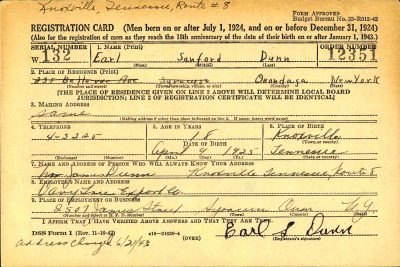 Knoxville, Tennessee, Route # 8
FORM APPROVED
Budget Bureau No. 33-R012-42
REGISTRATION CARD (Men born on or after July 1, 1924, and on or before December 31, 1924)
(Also for the registration of men as they reach the 18th anniversary of the date of their birth on or after January 1, 1943.)
SERIAL NUMBER 1. NAME (Print) ORDER NUMBER
W 132 Earl Sanford Dunn 12351
(First) (Middle) (Last)
2. PLACE OF RESIDENCE (Print)
Ave Syracuse Onondaga New York
[THE PLACE OF RESIDENCE GIVEN ON LINE 2 ABOVE WILL DETERMINE LOCAL BOARD
JURISDICTION; LINE 2 OF REGISTRATION CERTIFICATE WILL BE IDENTICAL]
3. MAILING ADDRESS
Same
(Mailing address if other than place indicated on line 2. If same, insert word same)
4. TELEPHONE 5. AGE IN YEARS 6. PLACE OF BIRTH
4-3225 18 Knoxville
DATE OF BIRTH (Town or county)
April 4 1925 Tennessee
(Exchange) (Number) (Mo.) (Day) (Yr.) (State or country)
7. NAME AND ADDRESS OF PERSON WHO WILL ALWAYS KNOW YOUR ADDRESS
James Dunn Knoxville Tennessee, Route 8
8. EMPLOYER'S NAME AND ADDRESS
Co
9. PLACE OF EMPLOYMENT OR BUSINESS
James Street Syracuse Onon N.Y.
(Number and street or R. F. D. number) (Town) (County) (State)
I AFFIRM THAT I HAVE VERIFIED ABOVE ANSWERS AND THAT THEY ARE TRUE.
DSS Form 1 (Rev. 11-16-42) Earl S. Dunn
(Registrant's signature)